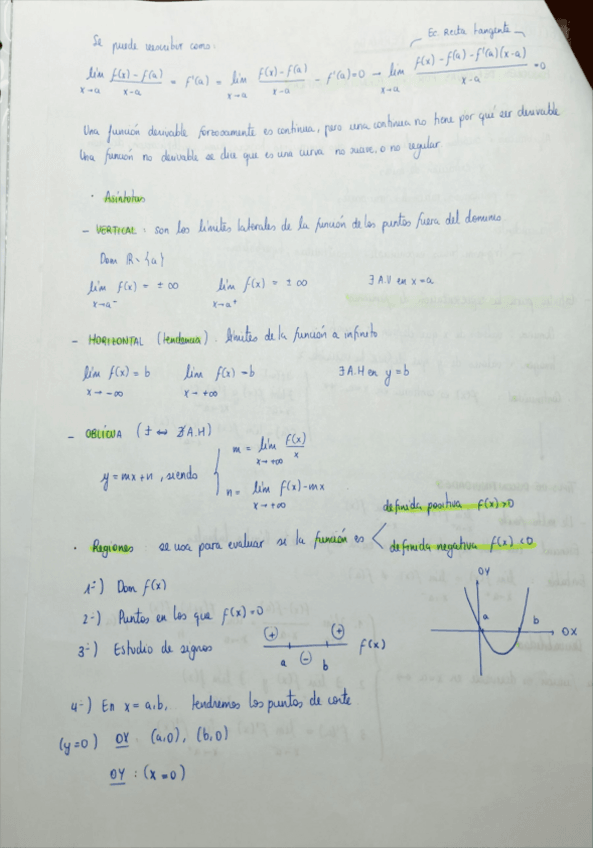 Ec. Recta tangente
Se puede reescribir como:
lim x→a (f(x) - f(a))/(x-a) = f'(a) = lim x→a (f(x) - f(a))/(x-a) - f'(a) = 0 → lim x→a (f(x) - f(a) - f'(a)(x-a))/(x-a) = 0
Una función derivable forzosamente es continua, pero una continua no tiene por qué ser derivable
Una función no derivable se dice que es una curva no suave, o no regular
· Asíntotas
- VERTICAL: son los límites laterales de la función de los puntos fuera del dominio
Dom ℝ - {a}
lim x→a⁻ f(x) = ±∞   lim x→a⁺ f(x) = ±∞   ∃ A.V en x=a
- HORIZONTAL (tendencia): límites de la función a infinito
lim x→-∞ f(x) = b   lim x→+∞ f(x) = b   ∃ A.H en y=b
- OBLÍCUA (∃ ⇔ ∄ A.H)
m = lim x→+∞ f(x)/x
y = mx+n, siendo
n = lim x→+∞ f(x) - mx
definida positiva f(x)>0
· Regiones: se usa para evaluar si la función es
definida negativa f(x)<0
1º) Dom f(x)
2º) Puntos en los que f(x)=0
3º) Estudio de signos   (+) a (-) b (+)   f(x)
OY
a b OX
4º) En x = a, b, tendremos los puntos de corte
(y=0) OX (a,0), (b,0)
OY: (x=0)